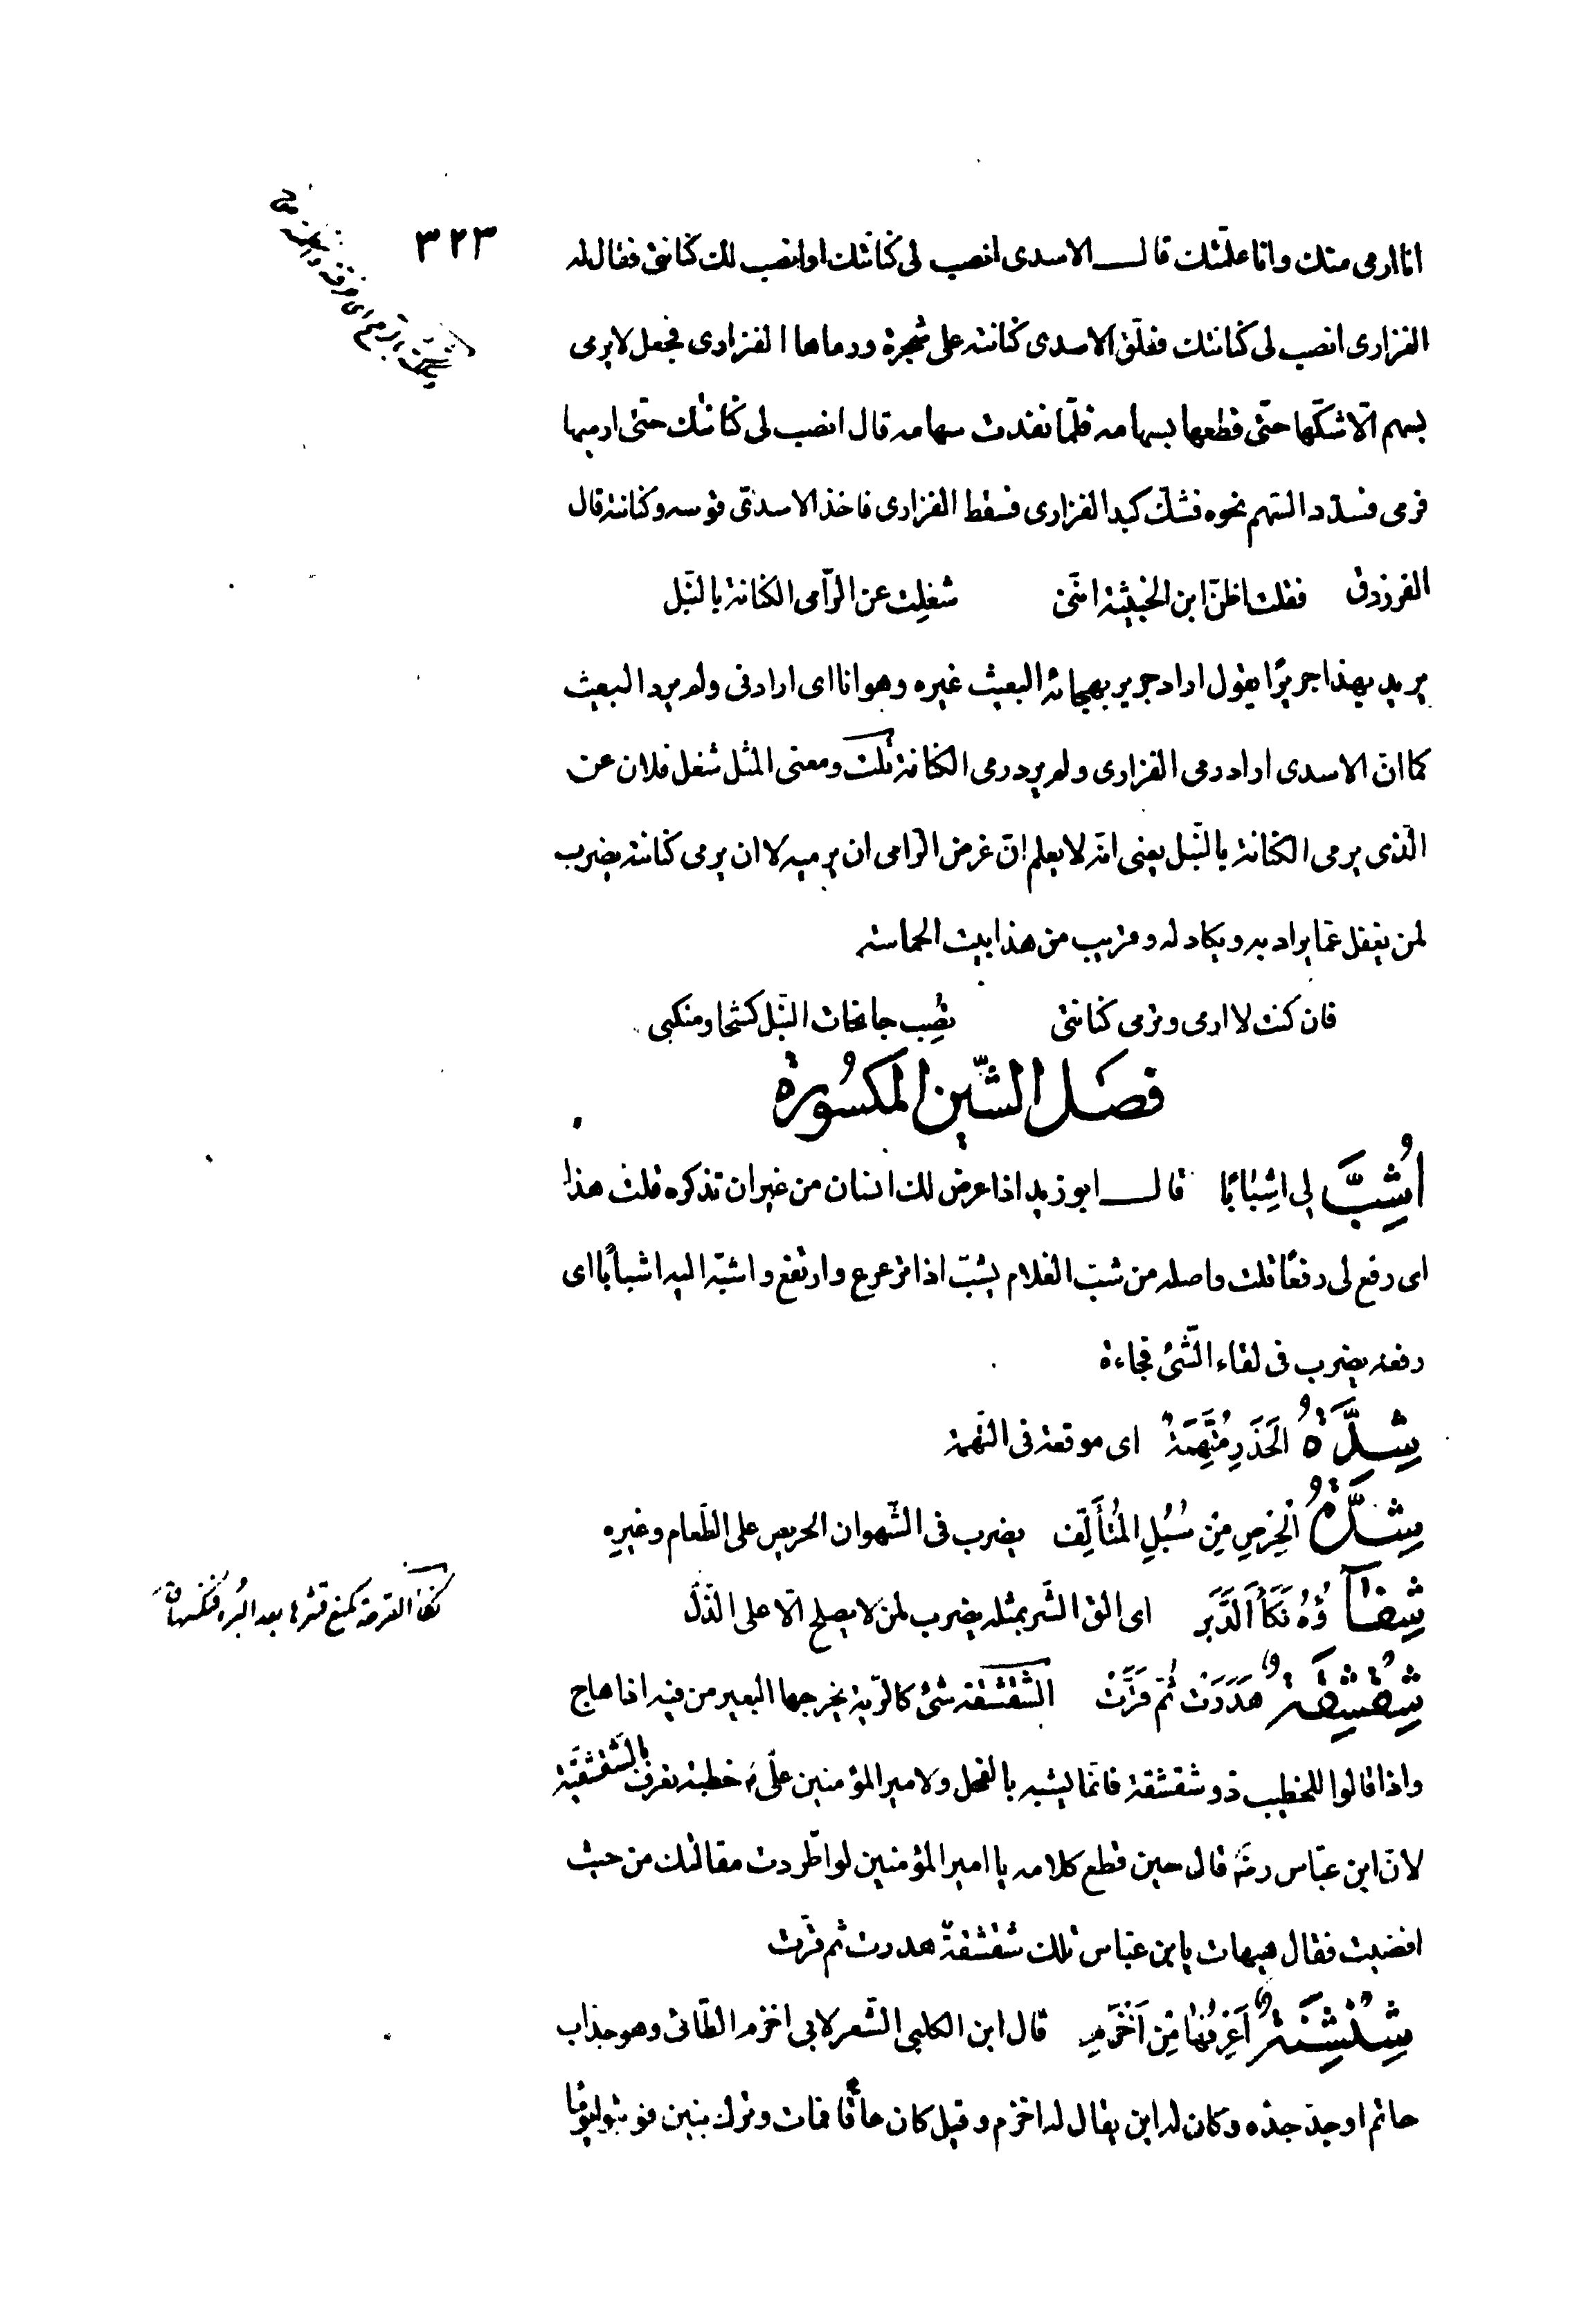 ٣٢٣
انا ارمى منك وانا علّمتك قال الاسدى انصب لى كنانتك او انصب لك كنانتى فقال له
الفزارى انصب لى كنانتك فعلّق الاسدى كنانته على شجرة ورماها الفزارى فجعل لا يرمى
بسهم الّا شكّها حتّى قطعها بسهامه فلمّا نفدت سهامه قال انصب لى كنانتك حتى ارميها
فرمى فسدّد السّهم نحوه فشكّ كبد الفزارى فسقط الفزارى فاخذ الاسدىّ قوسه وكنانته قال
الفرزدق فقلت اظنّ ابن الخبيثة انّنى شغلت عن الرّامى الكنانة بالنّبل
يريد بهذا جريرًا يقول اراد جرير بهجائه البعيث غيره وهو انا اى ارادنى ولم يرد البعيث
كما انّ الاسدى اراد رمى الفزارى ولم يرد رمى الكنانة قلت ومعنى المثل شغل فلان عن
الّذى يرمى الكنانة بالنّبل يعنى انّه لا يعلم انّ غرض الرّامى ان يرميه لا ان يرمى كنانته يضرب
لمن يغفل عمّا يراد به ويكاد له وقريب من هذا بيت الحماسة
فان كنت لا ارمى وترمى كنانتى تصب جانحات النّبل كشحا ومنكبى
فصل الشّين المكسورة
اُشِبَّ لى اِشْبَابًا قال ابو زيد اذا عرض لك انسان من غير ان تذكره قلت هذا
اى رفع لى رفعًا قلت واصله من شبّ الغلام يشبّ اذا ترعرع وارتفع واشبّه اليه اشبابًا اى
رفعه يضرب فى لقاء الشّئ فجاءة
شِدَّةُ الحَذَرِ مُتْهِمَةٌ اى موقعة فى التّهمة
شِدَّةُ الحِرْصِ مِنْ سُبُلِ المُتَأَلِّفِ يضرب فى الشّهوان الحريص على الطّعام وغيره
شِفَآؤُهُ نَكَأُ الدَّبَرِ اى الق الشّر بمثله يضرب لمن لا يصلح الّا على الذّلّ
نكأ القرحة كمنع قشرها بعد البرء فنكسها
شِقْشِقَةٌ هَدَرَتْ ثُمَّ قَرَّتْ الشّقشقة شئ كالرّية يخرجها البعير من فيه اذا هاج
واذا قالوا للخطيب ذو شقشقة فانّما يشبه بالفحل ولامير المؤمنين علىّ خطبة تعرف بالشّقشقيّة
لانّ ابن عبّاس رضه قال حين قطع كلامه يا امير المؤمنين لو اطّردت مقالتك من حيث
افضيت فقال هيهات يا بن عبّاس تلك شقشقة هدرت ثم قرّت
شِنْشِنَةٌ اَعْرِفُهَا مِنْ اَخْزَمِ قال ابن الكلبى الشّعر لابى اخزم الطّائى وهو جد اب
حاتم او جدّ جدّه وكان له ابن يقال له اخزم وقيل كان عاقًا فمات وترك بنين فوثبوا يومًا